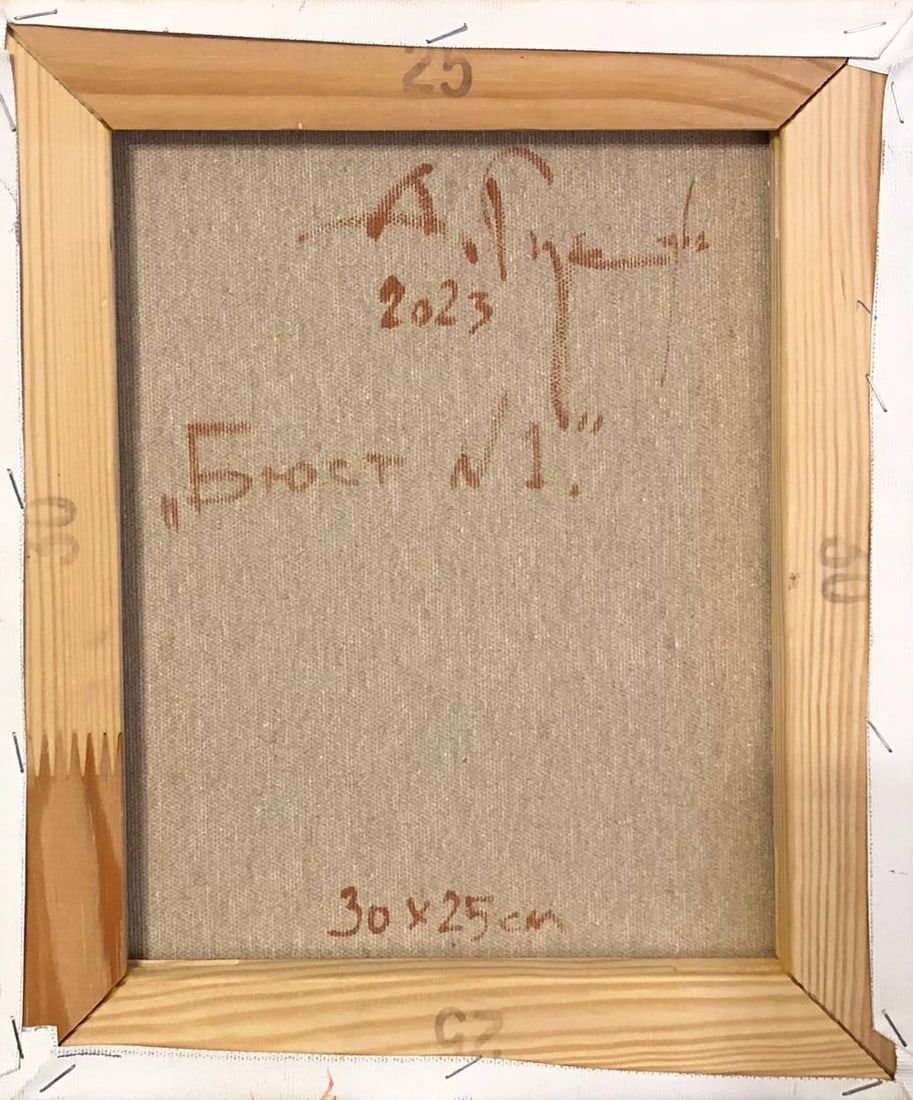 25
А.
2023
„Бюст №1."
30
30
30 х 25 см
25